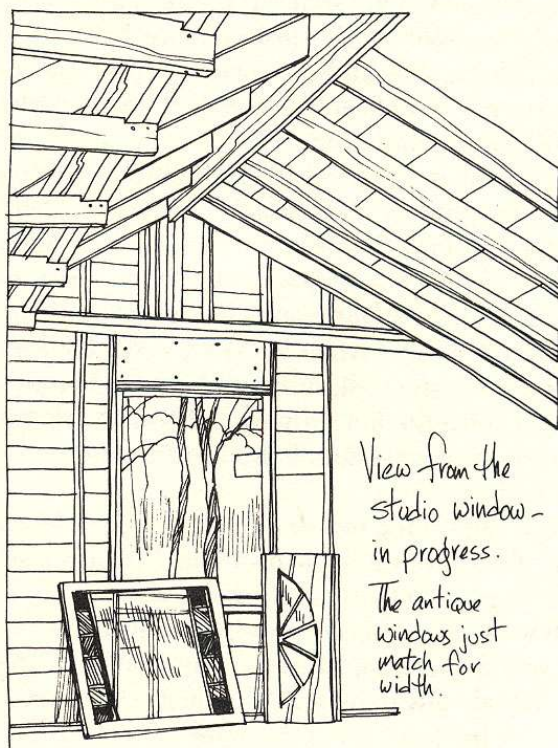 View from the
studio window -
in progress.
The antique
windows just
match for
width.